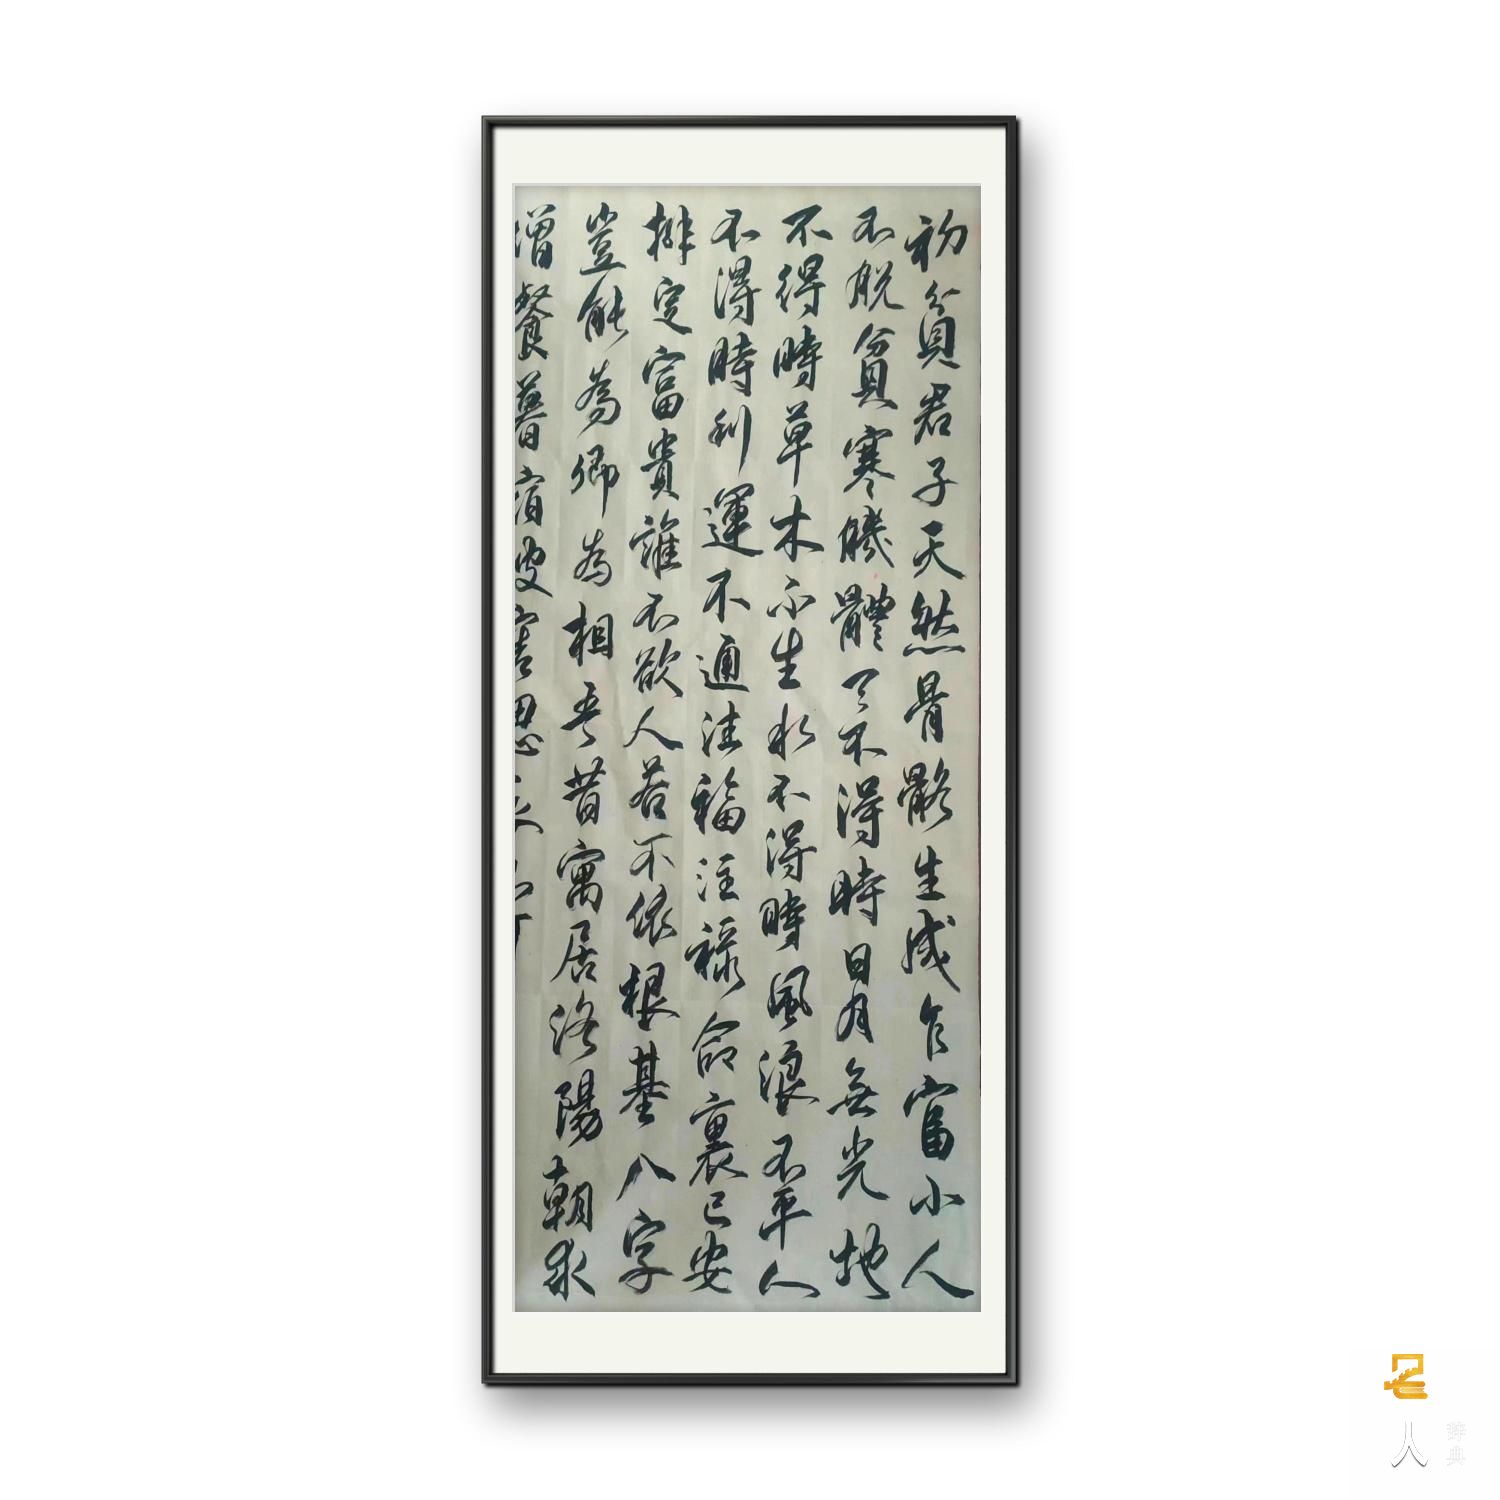 初貧君子天然骨骼生成乍富小人
不脱貧寒體天不得時日月無光地
不得時草木不生水不得時風浪不平人
不得時利運不通注福注禄命裏已安
排定富貴誰不欲人若不依根基八字
豈能為卿為相吾昔寓居洛陽朝求
僧餐暮宿思衣
人
辞典